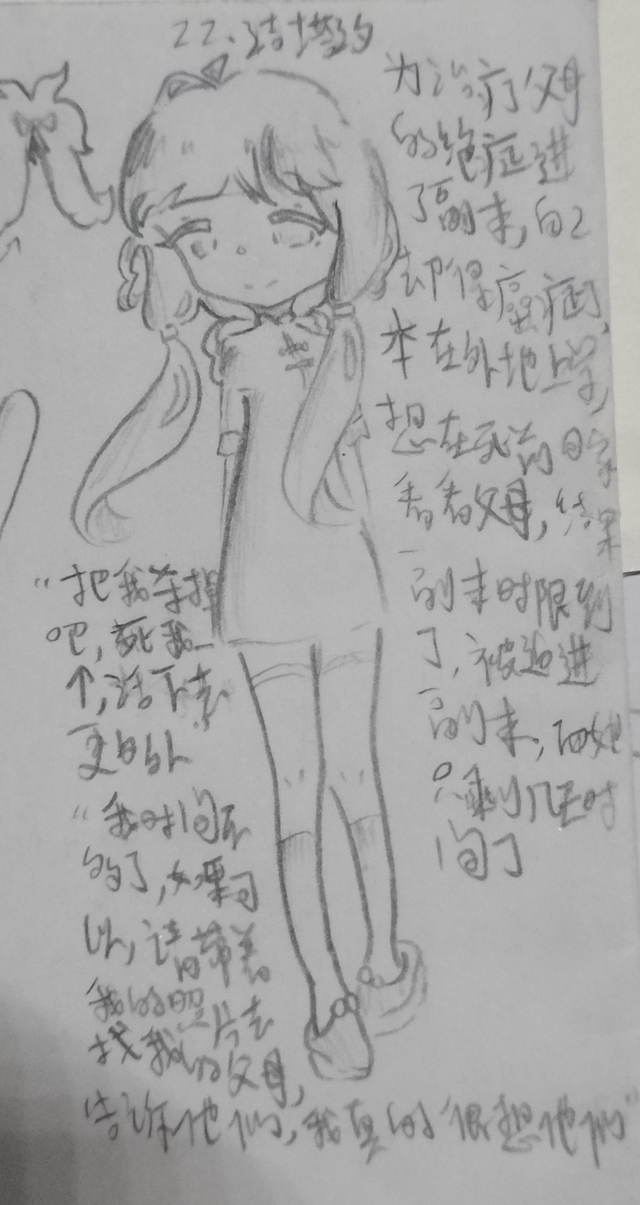 22.结塔约
为治疗父母
的绝症进
了副本,自己
却得癌症了,
本在外地上学,
想在死前回家
看看父母,结果
副本时限到
了,被迫进
副本,而她
只剩几天时
间了
“把我杀掉
吧,死我一
个,活下去
更多的人”
“我时间不
够了,如果可
以,请带着
我的照片去
找我的父母,
告诉他们,我真的很想他们”